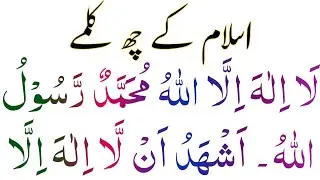 اسلام کے چھ کلمے
لَا اِلٰهَ اِلَّا اللهُ مُحَمَّدٌ رَّسُوْلُ
اللهُ ۔ اَشْهَدُ اَنْ لَّا اِلٰهَ اِلَّا